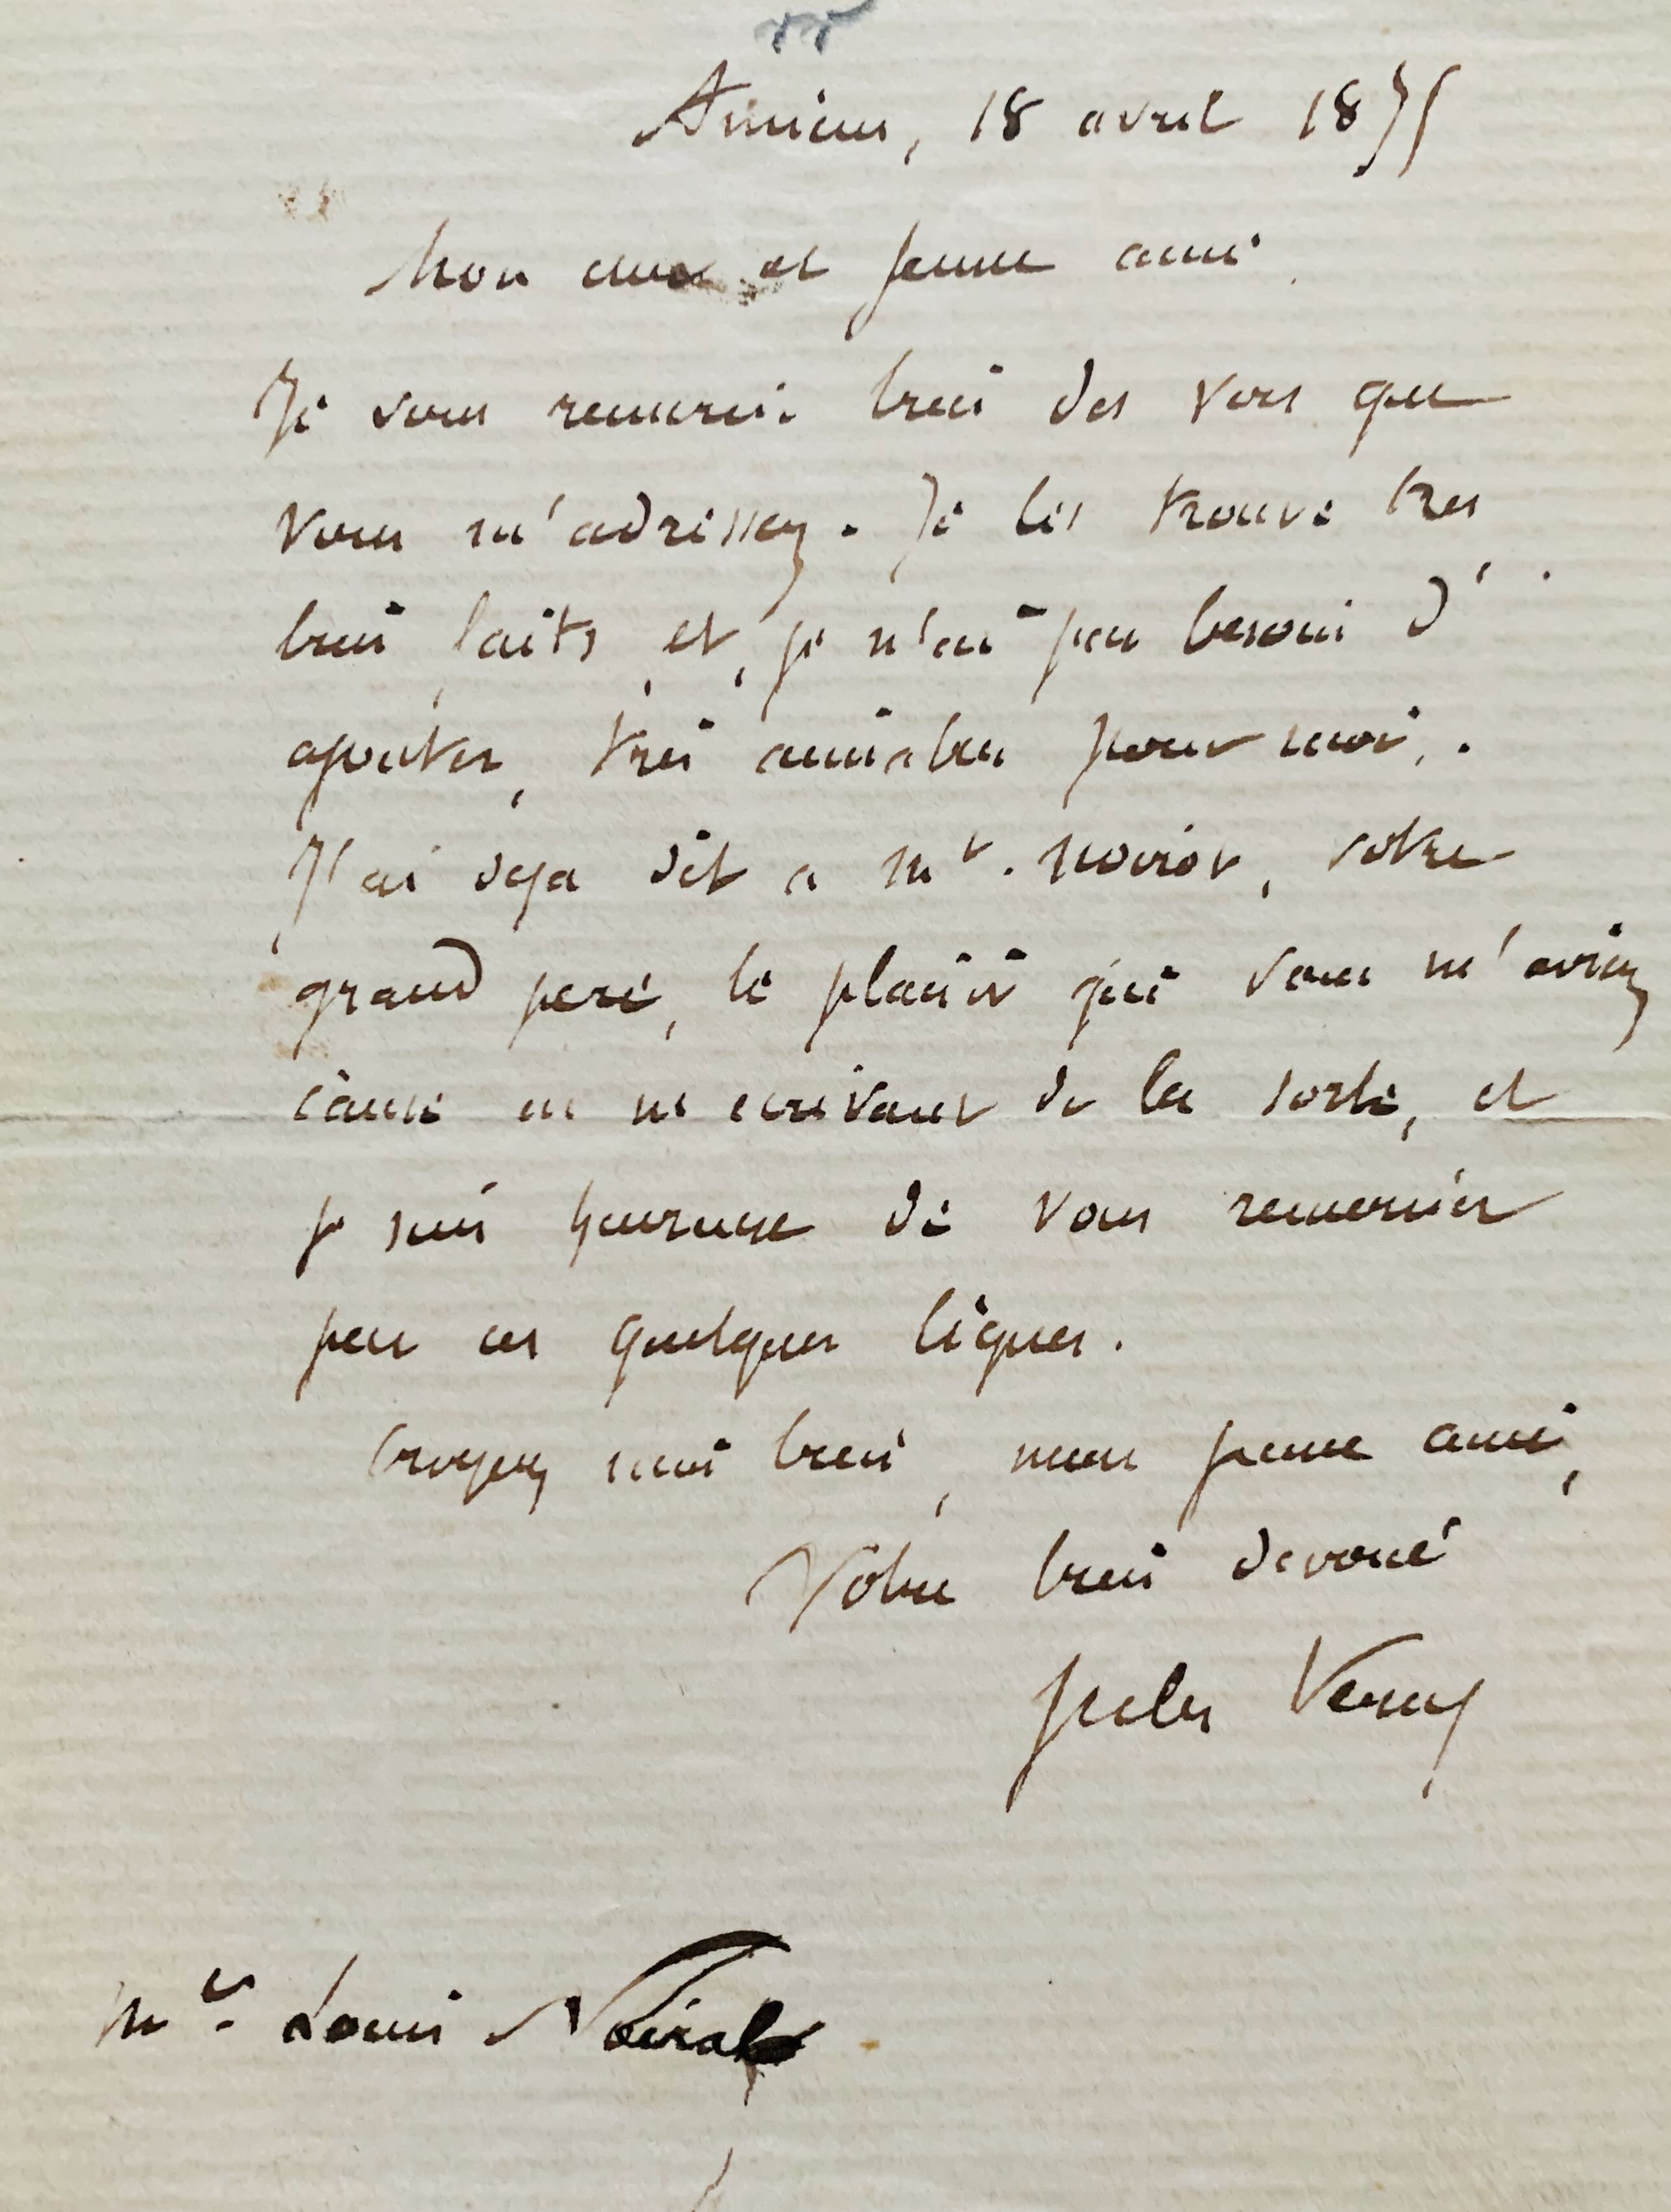 Amiens, 18 avril 1875
Mon cher et jeune ami
Je vous remercie bien des vers que
vous m'adressez. Je les trouve tres
bien faits, et, je n'ai pas besoin d'
ajouter, très aimables pour moi.
J'ai deja dit a Mr. Noiror, votre
grand pere, le plaisir que vous m'aviez
cause en m'ecrivant de la sorte, et
je suis heureux de vous remercier
par ces quelques lignes.
Croyez moi bien, mon jeune ami,
Votre bien devoué
Jules Verne
Mr. Louis